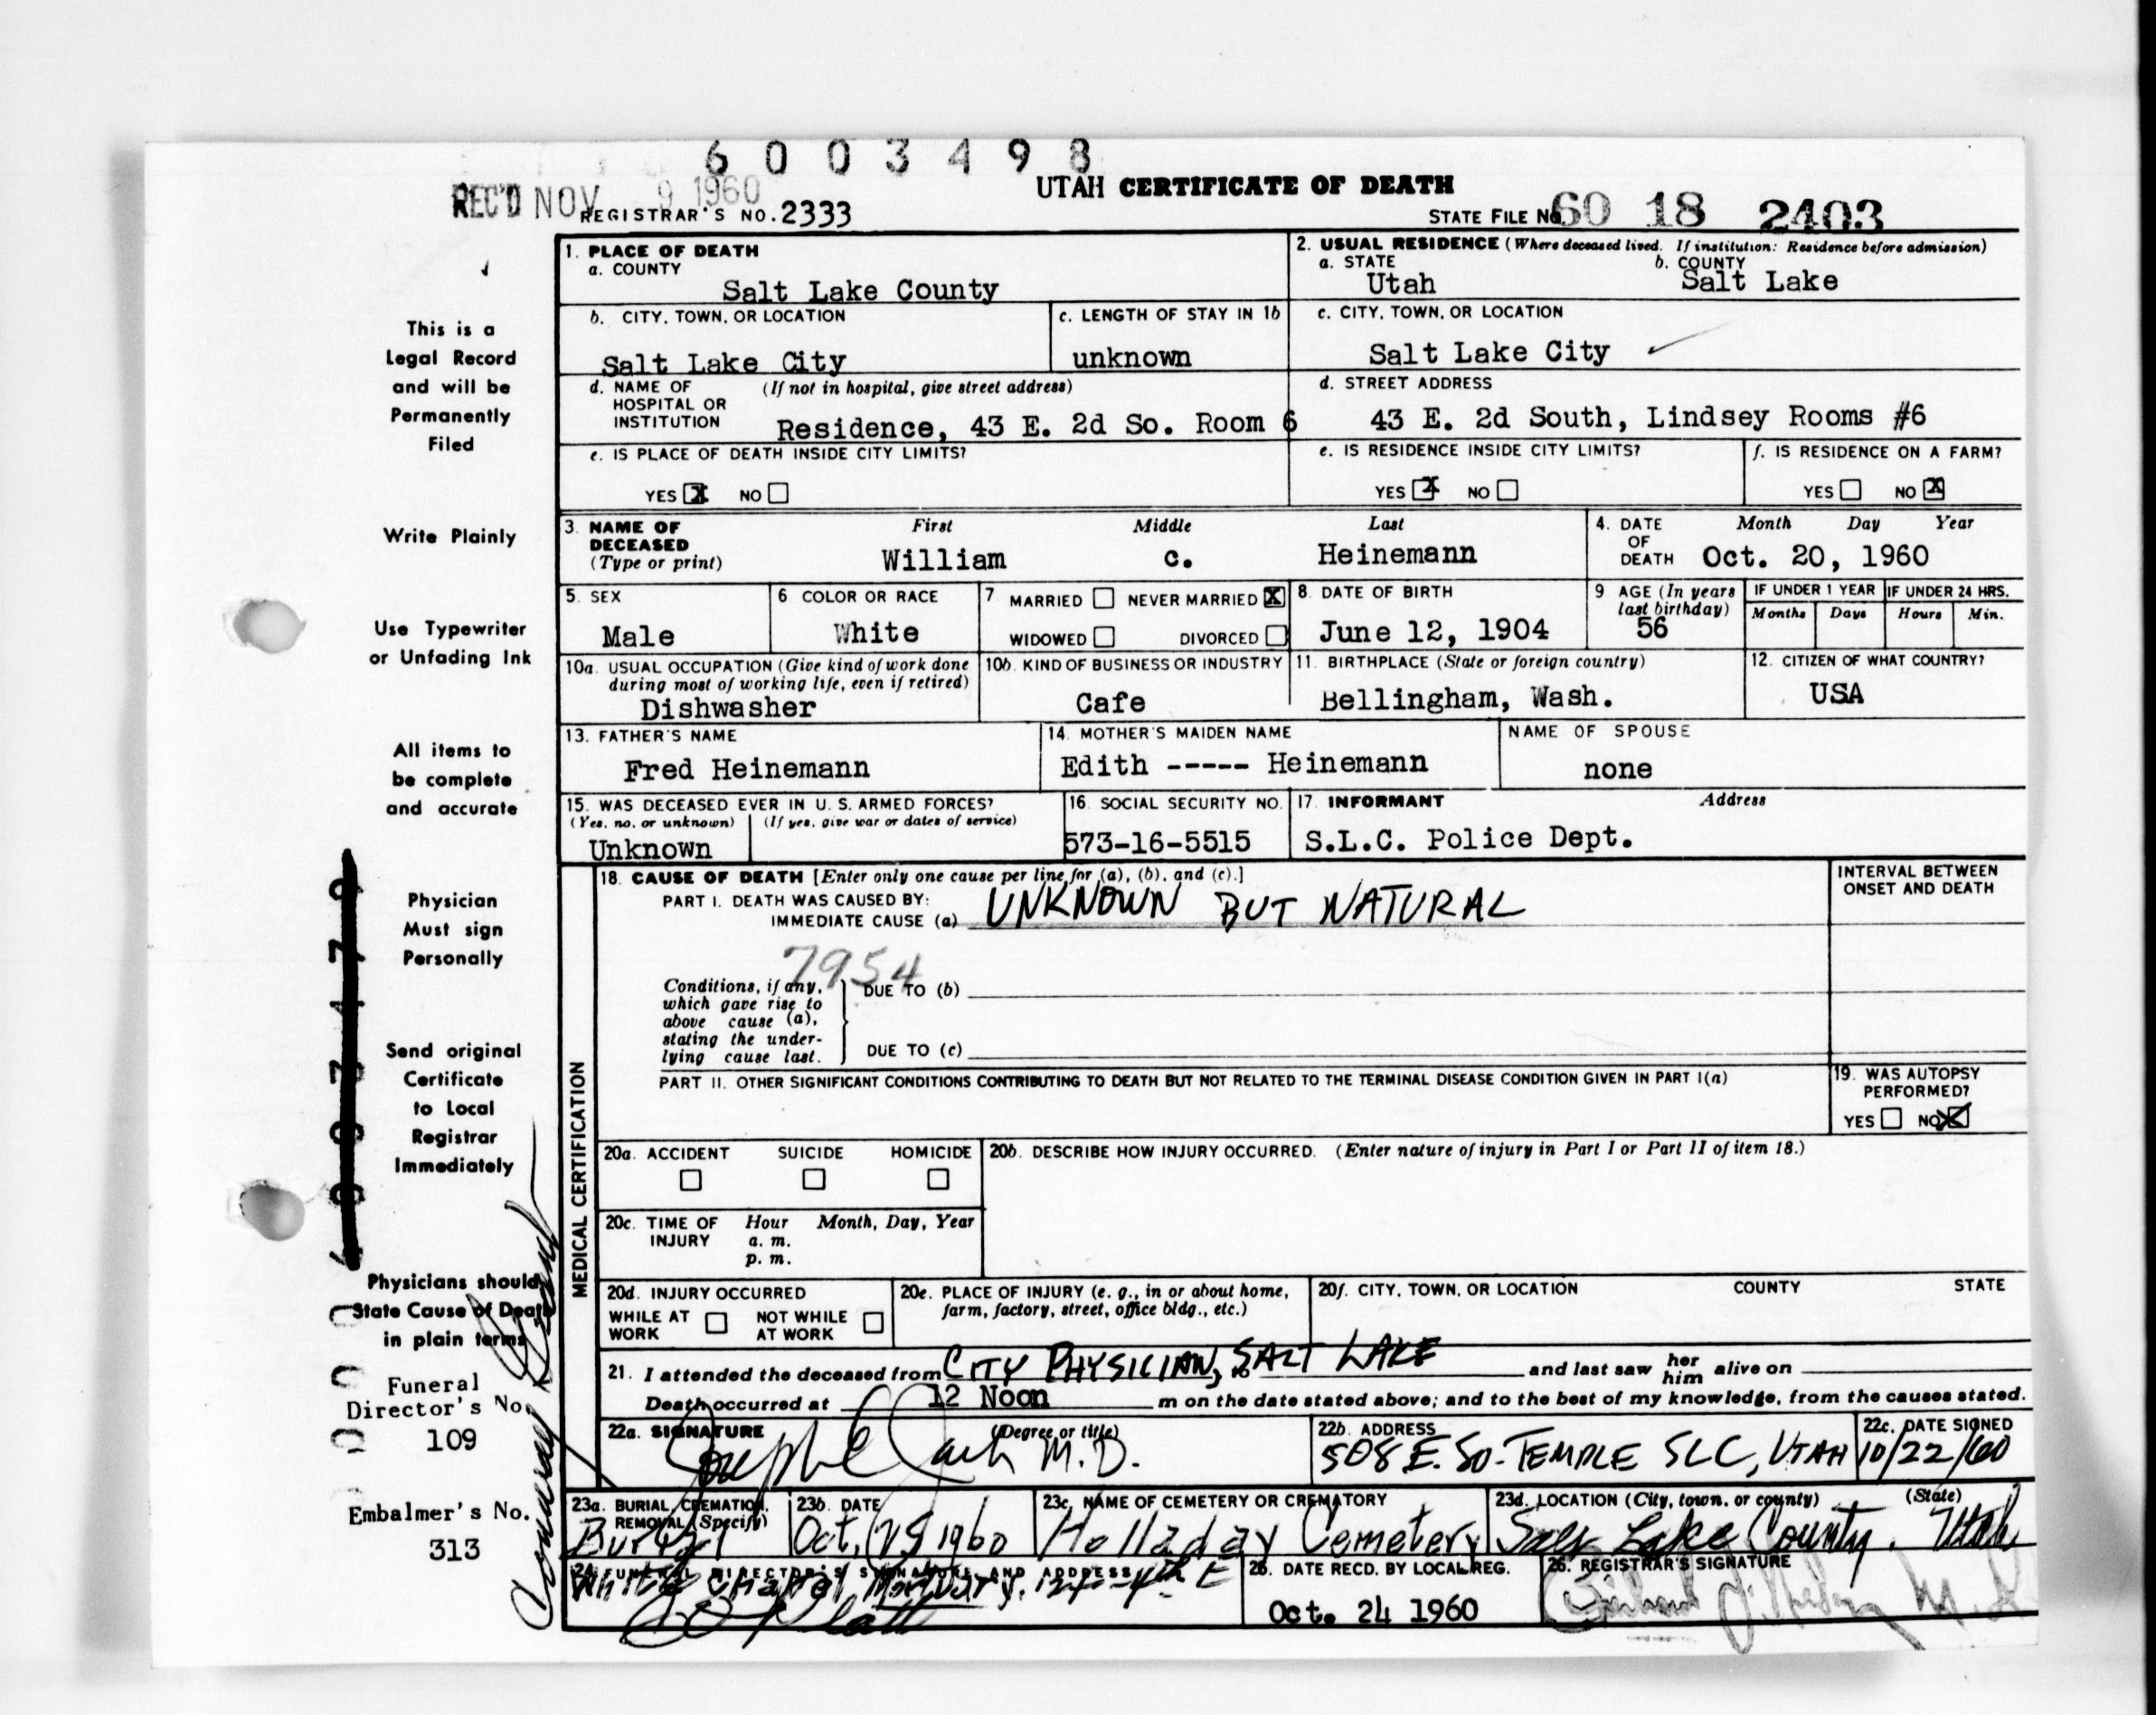 6 0 0 3 4 9 8
REC'D NOV 9 1960
UTAH CERTIFICATE OF DEATH
REGISTRAR'S NO. 2333
STATE FILE NO. 60 18 2403
This is a
Legal Record
and will be
Permanently
Filed
Write Plainly
Use Typewriter
or Unfading Ink
All items to
be complete
and accurate
Physician
Must sign
Personally
Send original
Certificate
to Local
Registrar
Immediately
Physicians should
State Cause of Death
in plain terms
Funeral
Director's No.
109
Embalmer's No.
313
1. PLACE OF DEATH
a. COUNTY
Salt Lake County
2. USUAL RESIDENCE (Where deceased lived. If institution: Residence before admission)
a. STATE b. COUNTY
Utah Salt Lake
b. CITY, TOWN, OR LOCATION
Salt Lake City
c. LENGTH OF STAY IN 1b
unknown
c. CITY, TOWN, OR LOCATION
Salt Lake City
d. NAME OF (If not in hospital, give street address)
HOSPITAL OR
INSTITUTION
Residence, 43 E. 2d So. Room 6
d. STREET ADDRESS
43 E. 2d South, Lindsey Rooms #6
e. IS PLACE OF DEATH INSIDE CITY LIMITS?
YES X NO
e. IS RESIDENCE INSIDE CITY LIMITS?
YES X NO
f. IS RESIDENCE ON A FARM?
YES NO X
3. NAME OF First Middle Last
DECEASED
(Type or print) William c. Heinemann
4. DATE Month Day Year
OF
DEATH Oct. 20, 1960
5. SEX
Male
6 COLOR OR RACE
White
7 MARRIED NEVER MARRIED X
WIDOWED DIVORCED
8. DATE OF BIRTH
June 12, 1904
9 AGE (In years
last birthday)
56
IF UNDER 1 YEAR IF UNDER 24 HRS.
Months Days Hours Min.
10a. USUAL OCCUPATION (Give kind of work done
during most of working life, even if retired)
Dishwasher
10b. KIND OF BUSINESS OR INDUSTRY
Cafe
11. BIRTHPLACE (State or foreign country)
Bellingham, Wash.
12. CITIZEN OF WHAT COUNTRY?
USA
13. FATHER'S NAME
Fred Heinemann
14. MOTHER'S MAIDEN NAME
Edith ----- Heinemann
NAME OF SPOUSE
none
15. WAS DECEASED EVER IN U. S. ARMED FORCES?
(Yes, no, or unknown) (If yes, give war or dates of service)
Unknown
16. SOCIAL SECURITY NO.
573-16-5515
17. INFORMANT Address
S.L.C. Police Dept.
MEDICAL CERTIFICATION
18. CAUSE OF DEATH [Enter only one cause per line for (a), (b), and (c).]
PART I. DEATH WAS CAUSED BY:
IMMEDIATE CAUSE (a) UNKNOWN BUT NATURAL
INTERVAL BETWEEN
ONSET AND DEATH
7954
Conditions, if any,
which gave rise to
above cause (a),
stating the under-
lying cause last.
DUE TO (b)
DUE TO (c)
PART II. OTHER SIGNIFICANT CONDITIONS CONTRIBUTING TO DEATH BUT NOT RELATED TO THE TERMINAL DISEASE CONDITION GIVEN IN PART I(a)
19. WAS AUTOPSY
PERFORMED?
YES NO X
20a. ACCIDENT SUICIDE HOMICIDE
20b. DESCRIBE HOW INJURY OCCURRED. (Enter nature of injury in Part I or Part II of item 18.)
20c. TIME OF Hour Month, Day, Year
INJURY a. m.
p. m.
20d. INJURY OCCURRED
WHILE AT NOT WHILE
WORK AT WORK
20e. PLACE OF INJURY (e. g., in or about home,
farm, factory, street, office bldg., etc.)
20f. CITY, TOWN, OR LOCATION COUNTY STATE
21. I attended the deceased from CITY PHYSICIAN, to SALT LAKE and last saw her him alive on
Death occurred at 12 Noon m on the date stated above; and to the best of my knowledge, from the causes stated.
22a. SIGNATURE (Degree or title)
M.D.
22b. ADDRESS
508 E. SO. TEMPLE SLC, UTAH
22c. DATE SIGNED
10/22/60
23a. BURIAL, CREMATION,
REMOVAL (Specify)
Burial
23b. DATE
Oct, 25 1960
23c. NAME OF CEMETERY OR CREMATORY
Holladay Cemetery
23d. LOCATION (City, town, or county) (State)
Salt Lake County. Utah
24. FUNERAL DIRECTOR'S SIGNATURE AND ADDRESS
White Chapel Mortuary.
25. DATE RECD. BY LOCAL REG.
Oct. 24 1960
26. REGISTRAR'S SIGNATURE